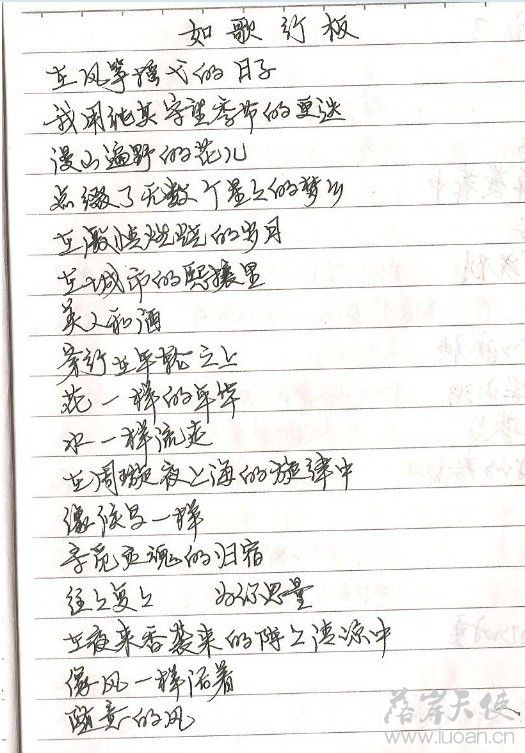 如歌行板
在风筝摇弋的日子
我用纯真守望季节的更迭
漫山遍野的花儿
点缀了无数个星星的梦乡
在激情燃烧的岁月
在城市的熙攘里
美人和酒
穿行在年轮之上
花一样的年华
水一样流走
在周璇夜上海的旋律中
像候鸟一样
寻觅灵魂的归宿
往往复复 为你思量
在夜来香袭来的阵阵清凉中
像风一样活着
随意的风
落岸天使
www.luoan.cn